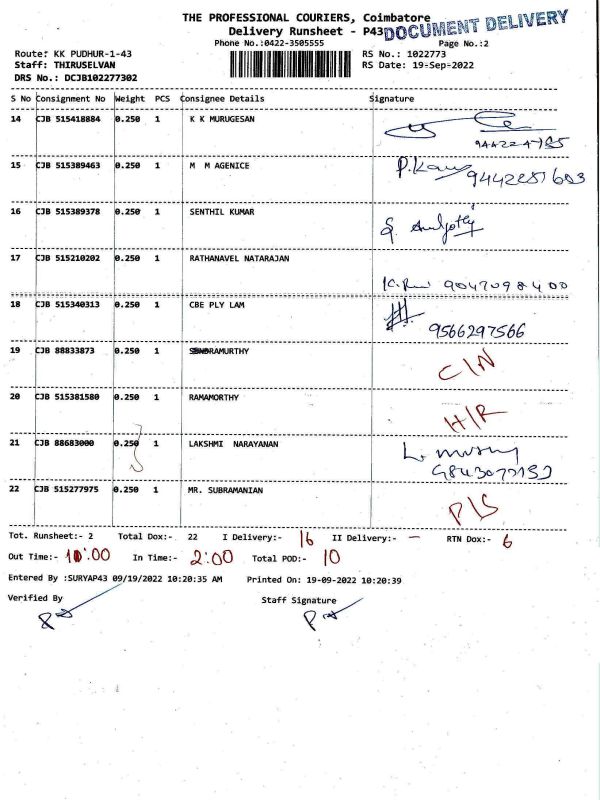 THE PROFESSIONAL COURIERS, Coimbatore
Delivery Runsheet - P43
DOCUMENT DELIVERY
Phone No.:0422-3505555
Page No.:2
Route: KK PUDHUR-1-43
RS No.: 1022773
Staff: THIRUSELVAN
RS Date: 19-Sep-2022
DRS No.: DCJB102277302
S No Consignment No Weight PCS Consignee Details Signature
14 CJB 515418884 0.250 1 K K MURUGESAN
15 CJB 515389463 0.250 1 M M AGENICE
16 CJB 515389378 0.250 1 SENTHIL KUMAR
17 CJB 515210202 0.250 1 RATHANAVEL NATARAJAN
9047098400
18 CJB 515340313 0.250 1 CBE PLY LAM
9566297566
19 CJB 88833873 0.250 1
C/N
20 CJB 515381580 0.250 1 RAMAMORTHY
H/R
21 CJB 88683000 0.250 1 LAKSHMI NARAYANAN
22 CJB 515277975 0.250 1 MR. SUBRAMANIAN
P/S
Tot. Runsheet:- 2 Total Dox:- 22 I Delivery:- 16 II Delivery:- - RTN Dox:- 6
Out Time:- 10:00 In Time:- 2:00 Total POD:- 10
Entered By :SURYAP43 09/19/2022 10:20:35 AM Printed On: 19-09-2022 10:20:39
Verified By Staff Signature